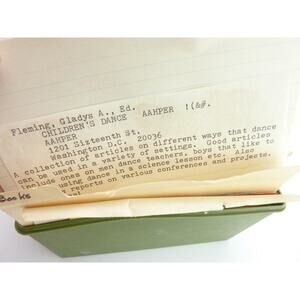 Fleming, Gladys A., Ed. AAHPER !(&#.
CHILDREN'S DANCE
AAHPER
1201 Sixteenth St.
Washington D.C. 20036
A collection of articles on different ways that dance
can be used in a variety of settings. Good articles
include ones on men dance teachers, boys that like to
using dance in a science lesson etc. Also
reports on various conferences and projects.
Books